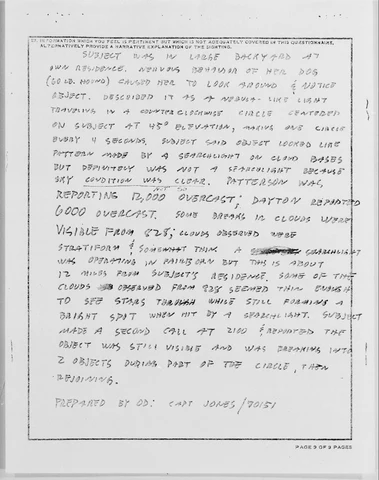 28. INFORMATION WHICH YOU FEEL IS PERTINENT BUT WHICH IS NOT ADEQUATELY COVERED IN THIS QUESTIONNAIRE.
ALTERNATIVELY PROVIDE A NARRATIVE EXPLANATION OF THE SIGHTING.
SUBJECT WAS IN LARGE BACKYARD AT
OWN RESIDENCE. NERVOUS BEHAVIOR OF HER DOG
CAUSED HER TO LOOK AROUND & NOTICE
OBJECT. DESCRIBED IT AS A NEBULA-LIKE LIGHT
TRAVELING IN A COUNTERCLOCKWISE CIRCLE CENTERED
ON SUBJECT AT 45° ELEVATION, MAKING ONE CIRCLE
EVERY 4 SECONDS. SUBJECT SAID OBJECT LOOKED LIKE
PATTERN MADE BY A SEARCHLIGHT ON CLOUD BASES
BUT DEFINITELY WAS NOT A SEARCHLIGHT BECAUSE
SKY CONDITION WAS CLEAR. PATTERSON WAS
REPORTING 12,000 OVERCAST; DAYTON REPORTED
6000 OVERCAST. SOME BREAKS IN CLOUDS WERE
VISIBLE FROM 828; CLOUDS OBSERVED WERE
STRATIFORM & SOMEWHAT THIN. A SEARCHLIGHT
WAS OPERATING IN FAIRBORN BUT THIS IS ABOUT
12 MILES FROM SUBJECT'S RESIDENCE. SOME OF THE
CLOUDS OBSERVED FROM 828 SEEMED THIN ENOUGH
TO SEE STARS THROUGH WHILE STILL FORMING A
BRIGHT SPOT WHEN HIT BY A SEARCHLIGHT. SUBJECT
MADE A SECOND CALL AT 2100 & REPORTED THE
OBJECT WAS STILL VISIBLE AND WAS BREAKING INTO
2 OBJECTS DURING PART OF THE CIRCLE, THEN
REJOINING.
PREPARED BY OD: CAPT JONES/70151
PAGE 9 OF 9 PAGES